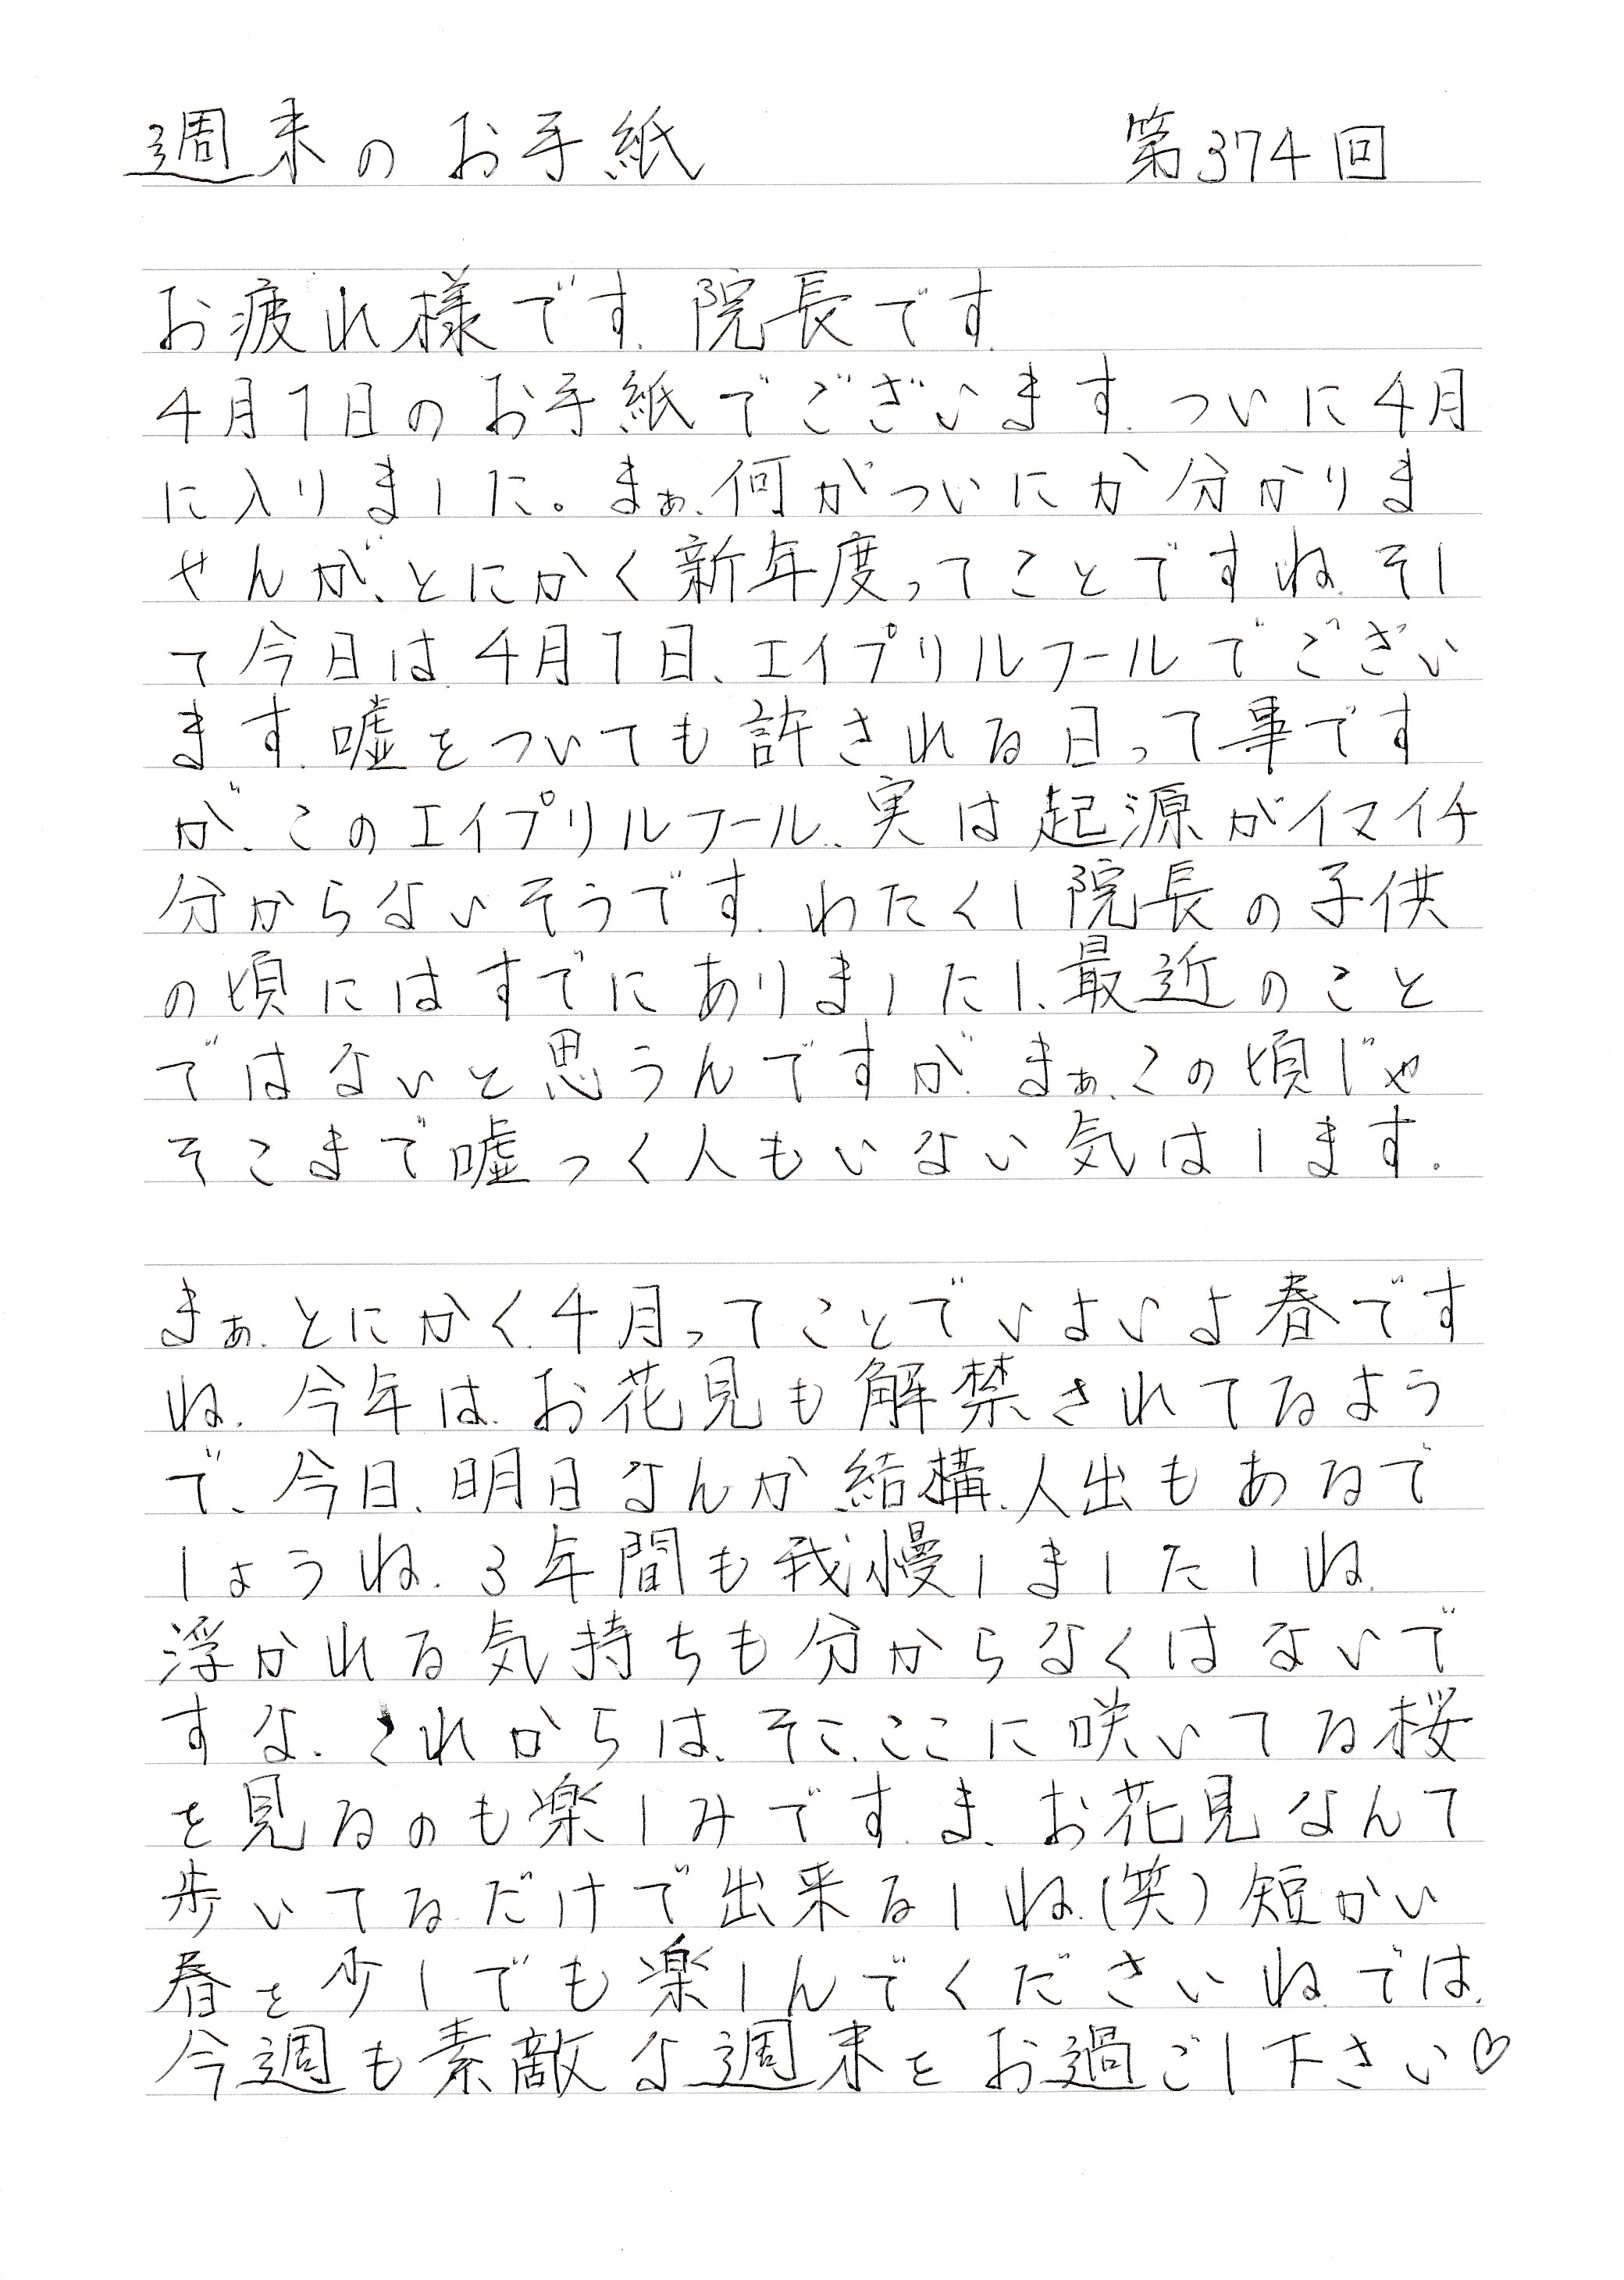 週末のお手紙 第374回
お疲れ様です.院長です.
4月1日のお手紙でございます.ついに4月
に入りました。まぁ、何がついにか分かりま
せんが、とにかく新年度ってことですね.そし
て今日は、4月1日、エイプリルフールでござい
ます.嘘をついても許される日って事です
が、このエイプリルフール、実は起源がイマイチ
分からないそうです.わたくし院長の子供
の頃にはすでにありましたし、最近のこと
ではないと思うんですが.まぁ、この頃じゃ
そこまで嘘つく人もいない気はします.
まぁ、とにかく、4月ってことでいよいよ春です
ね.今年は、お花見も解禁されてるよう
で、今日、明日なんか結構、人出もあるで
しょうね.3年間も我慢しましたしね.
浮かれる気持ちも分からなくはないで
すな.これからは、そこ、ここに咲いてる桜
を見るのも楽しみです.ま、お花見なんて
歩いてるだけで出来るしね.(笑)短かい
春を少しでも楽しんでくださいね.では、
今週も素敵な週末をお過ごし下さい♡